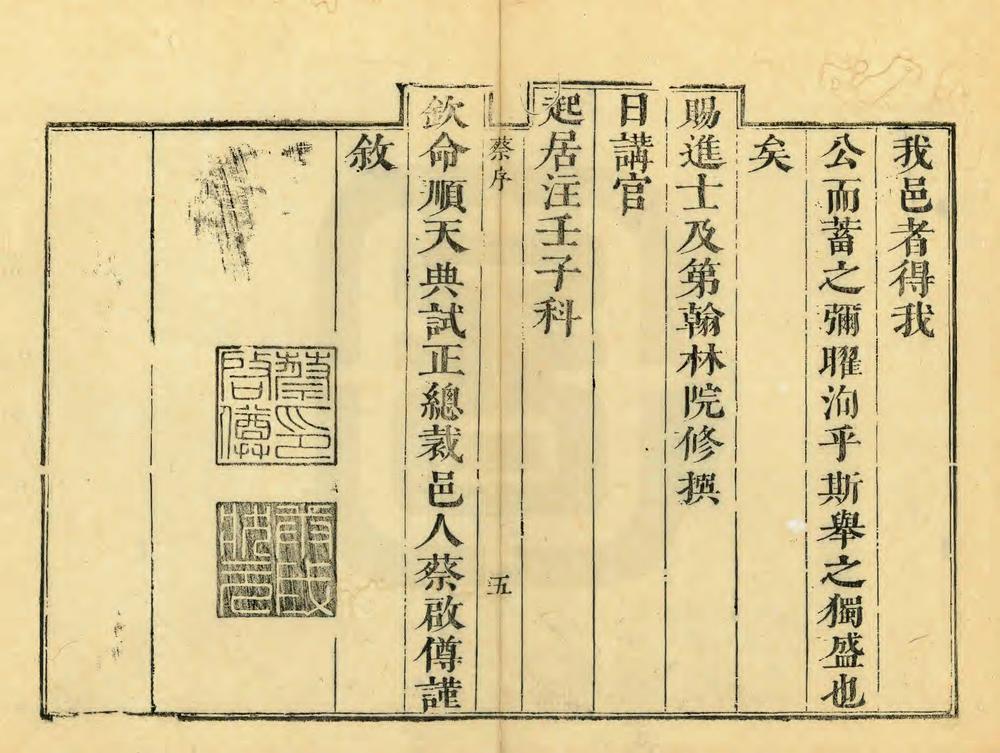 我邑者得我
公而蓄之彌曜洵乎斯舉之獨盛也
矣
賜進士及第翰林院修撰
日講官
起居注壬子科
蔡序
五
欽命順天典試正總裁邑人蔡啟僔謹
敘
蔡印啟僔